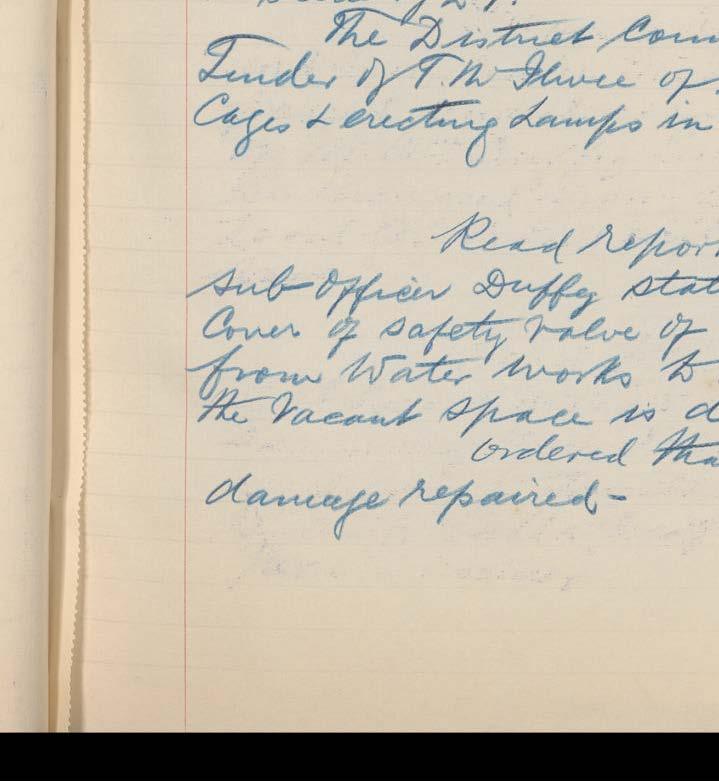 The District Com
Tender of T. Mc Ilwee of
Cages & erecting Lamps in
Read repor
sub-Officer Duffy stat
Cover of safety valve of
from Water works to
the vacant space is d
ordered tha
damage repaired-